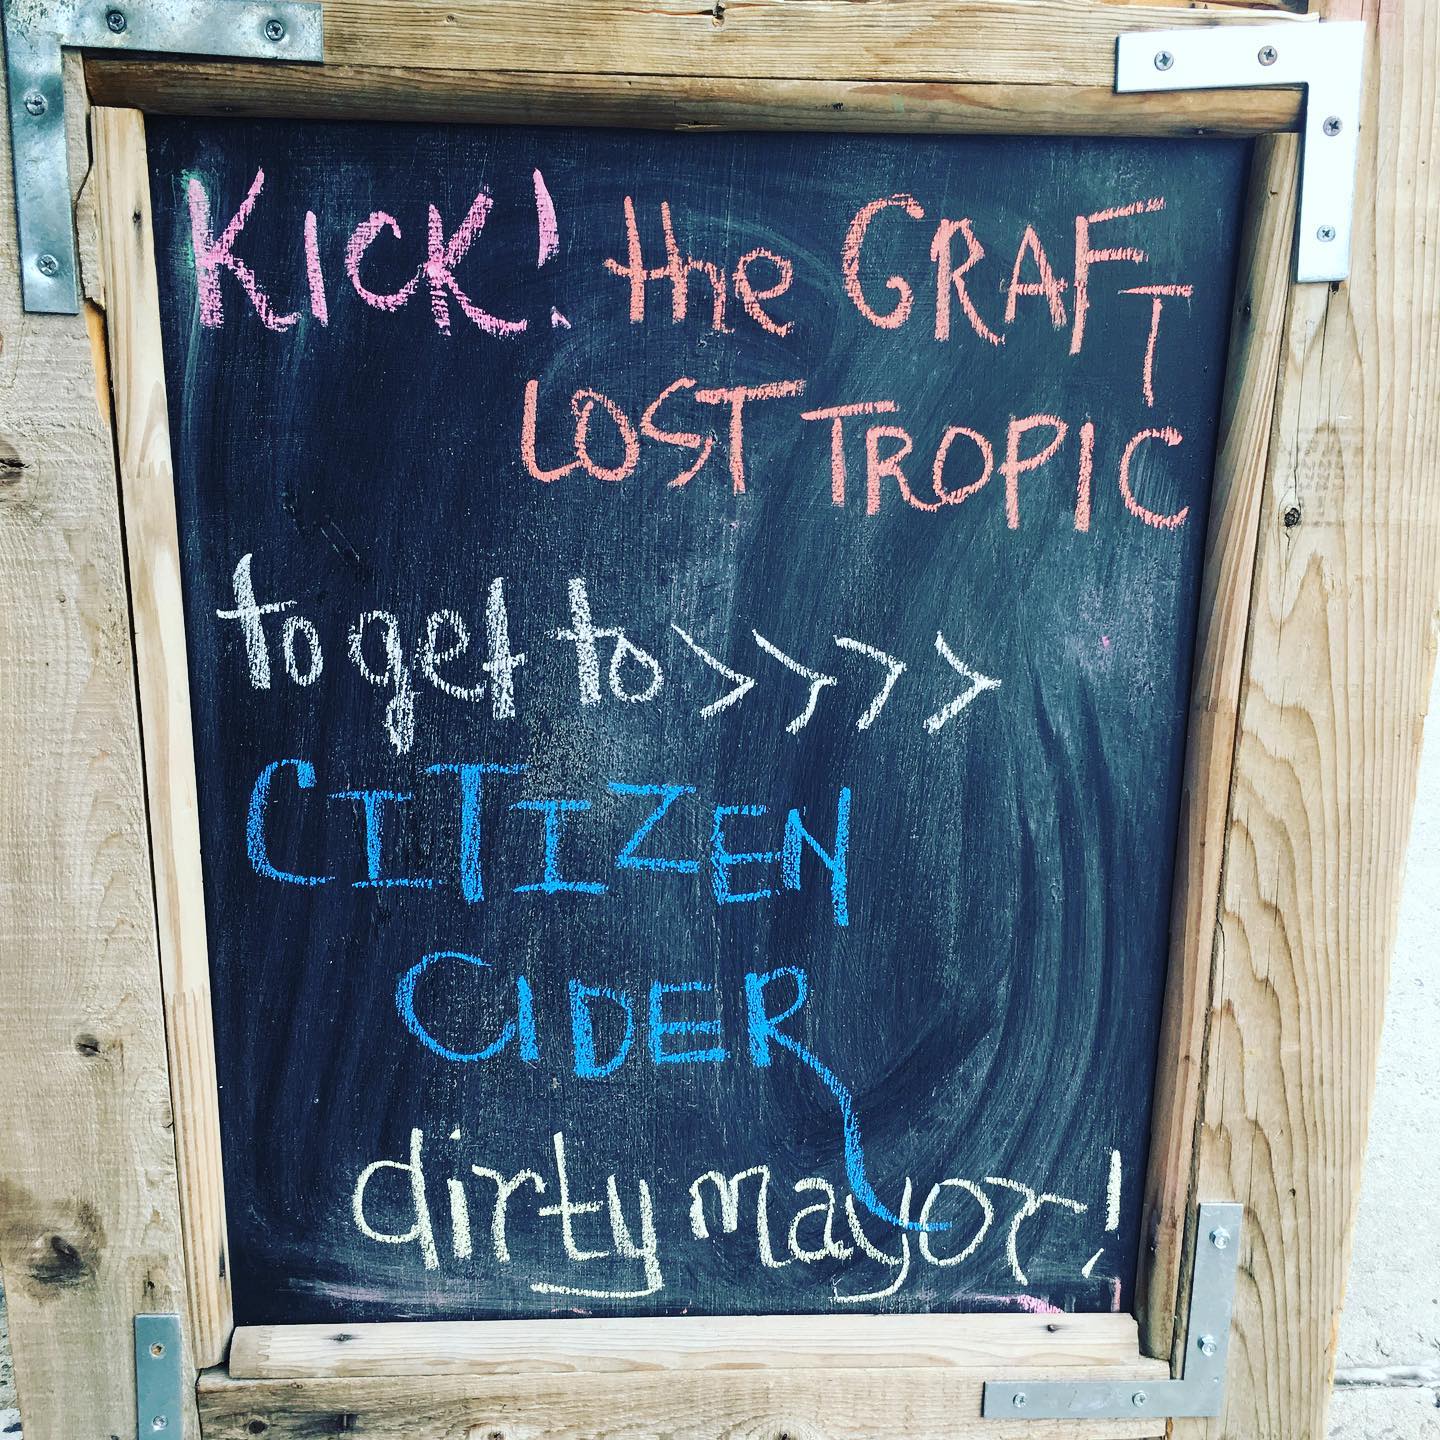 KICK! the GRAFT
LOST TROPIC
to get to >>>>
CITIZEN
CIDER
dirty mayor!